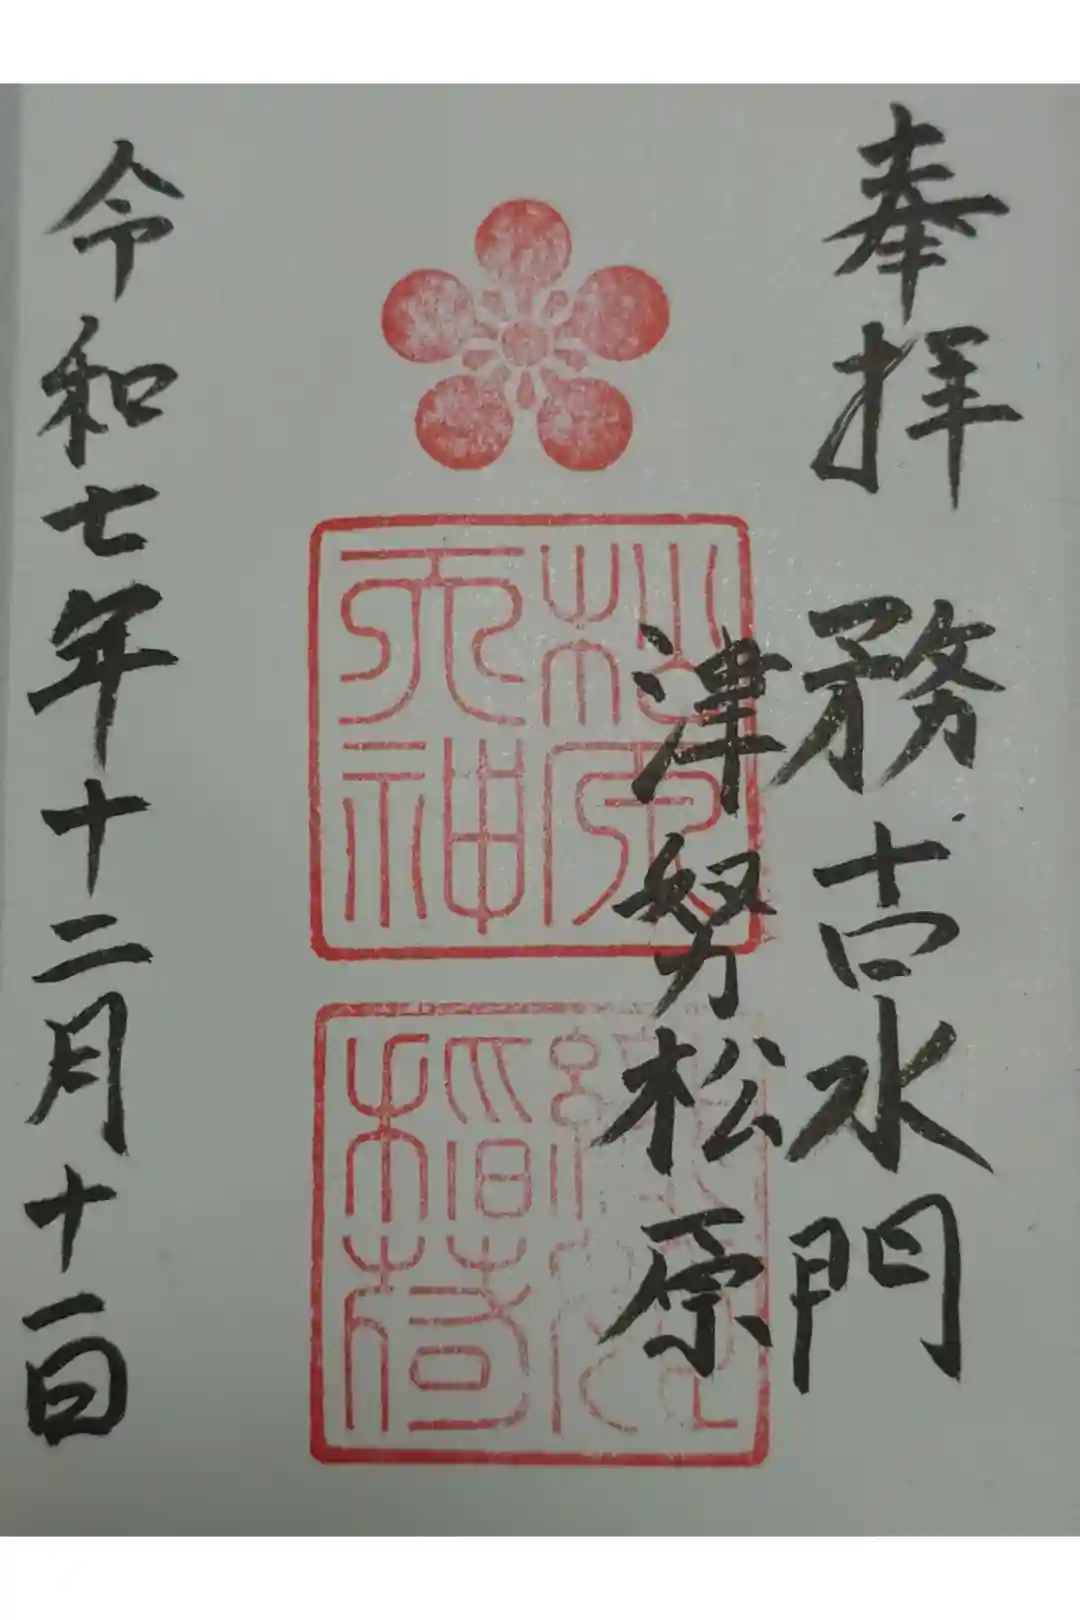 奉拝
務古水門
津努松原
松原
天神
稲荷
令和七年十二月十一日